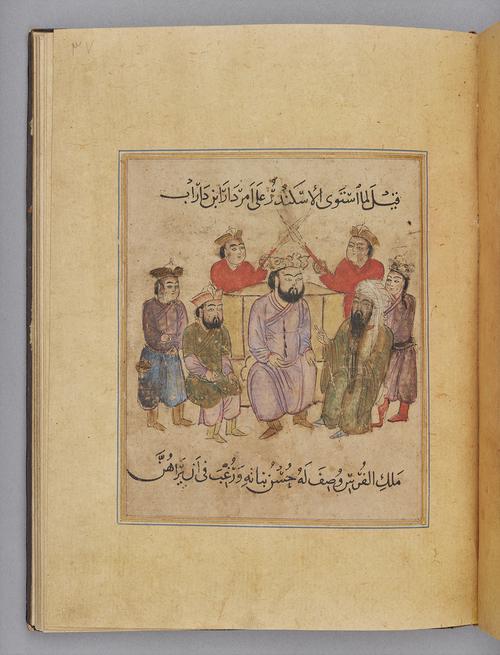 ٣٧
قيل لما استوى الإسكندر على أمر دارا ابن داراب
ملك الفرس وصف له حسن بناته ورغب في أن يراهن